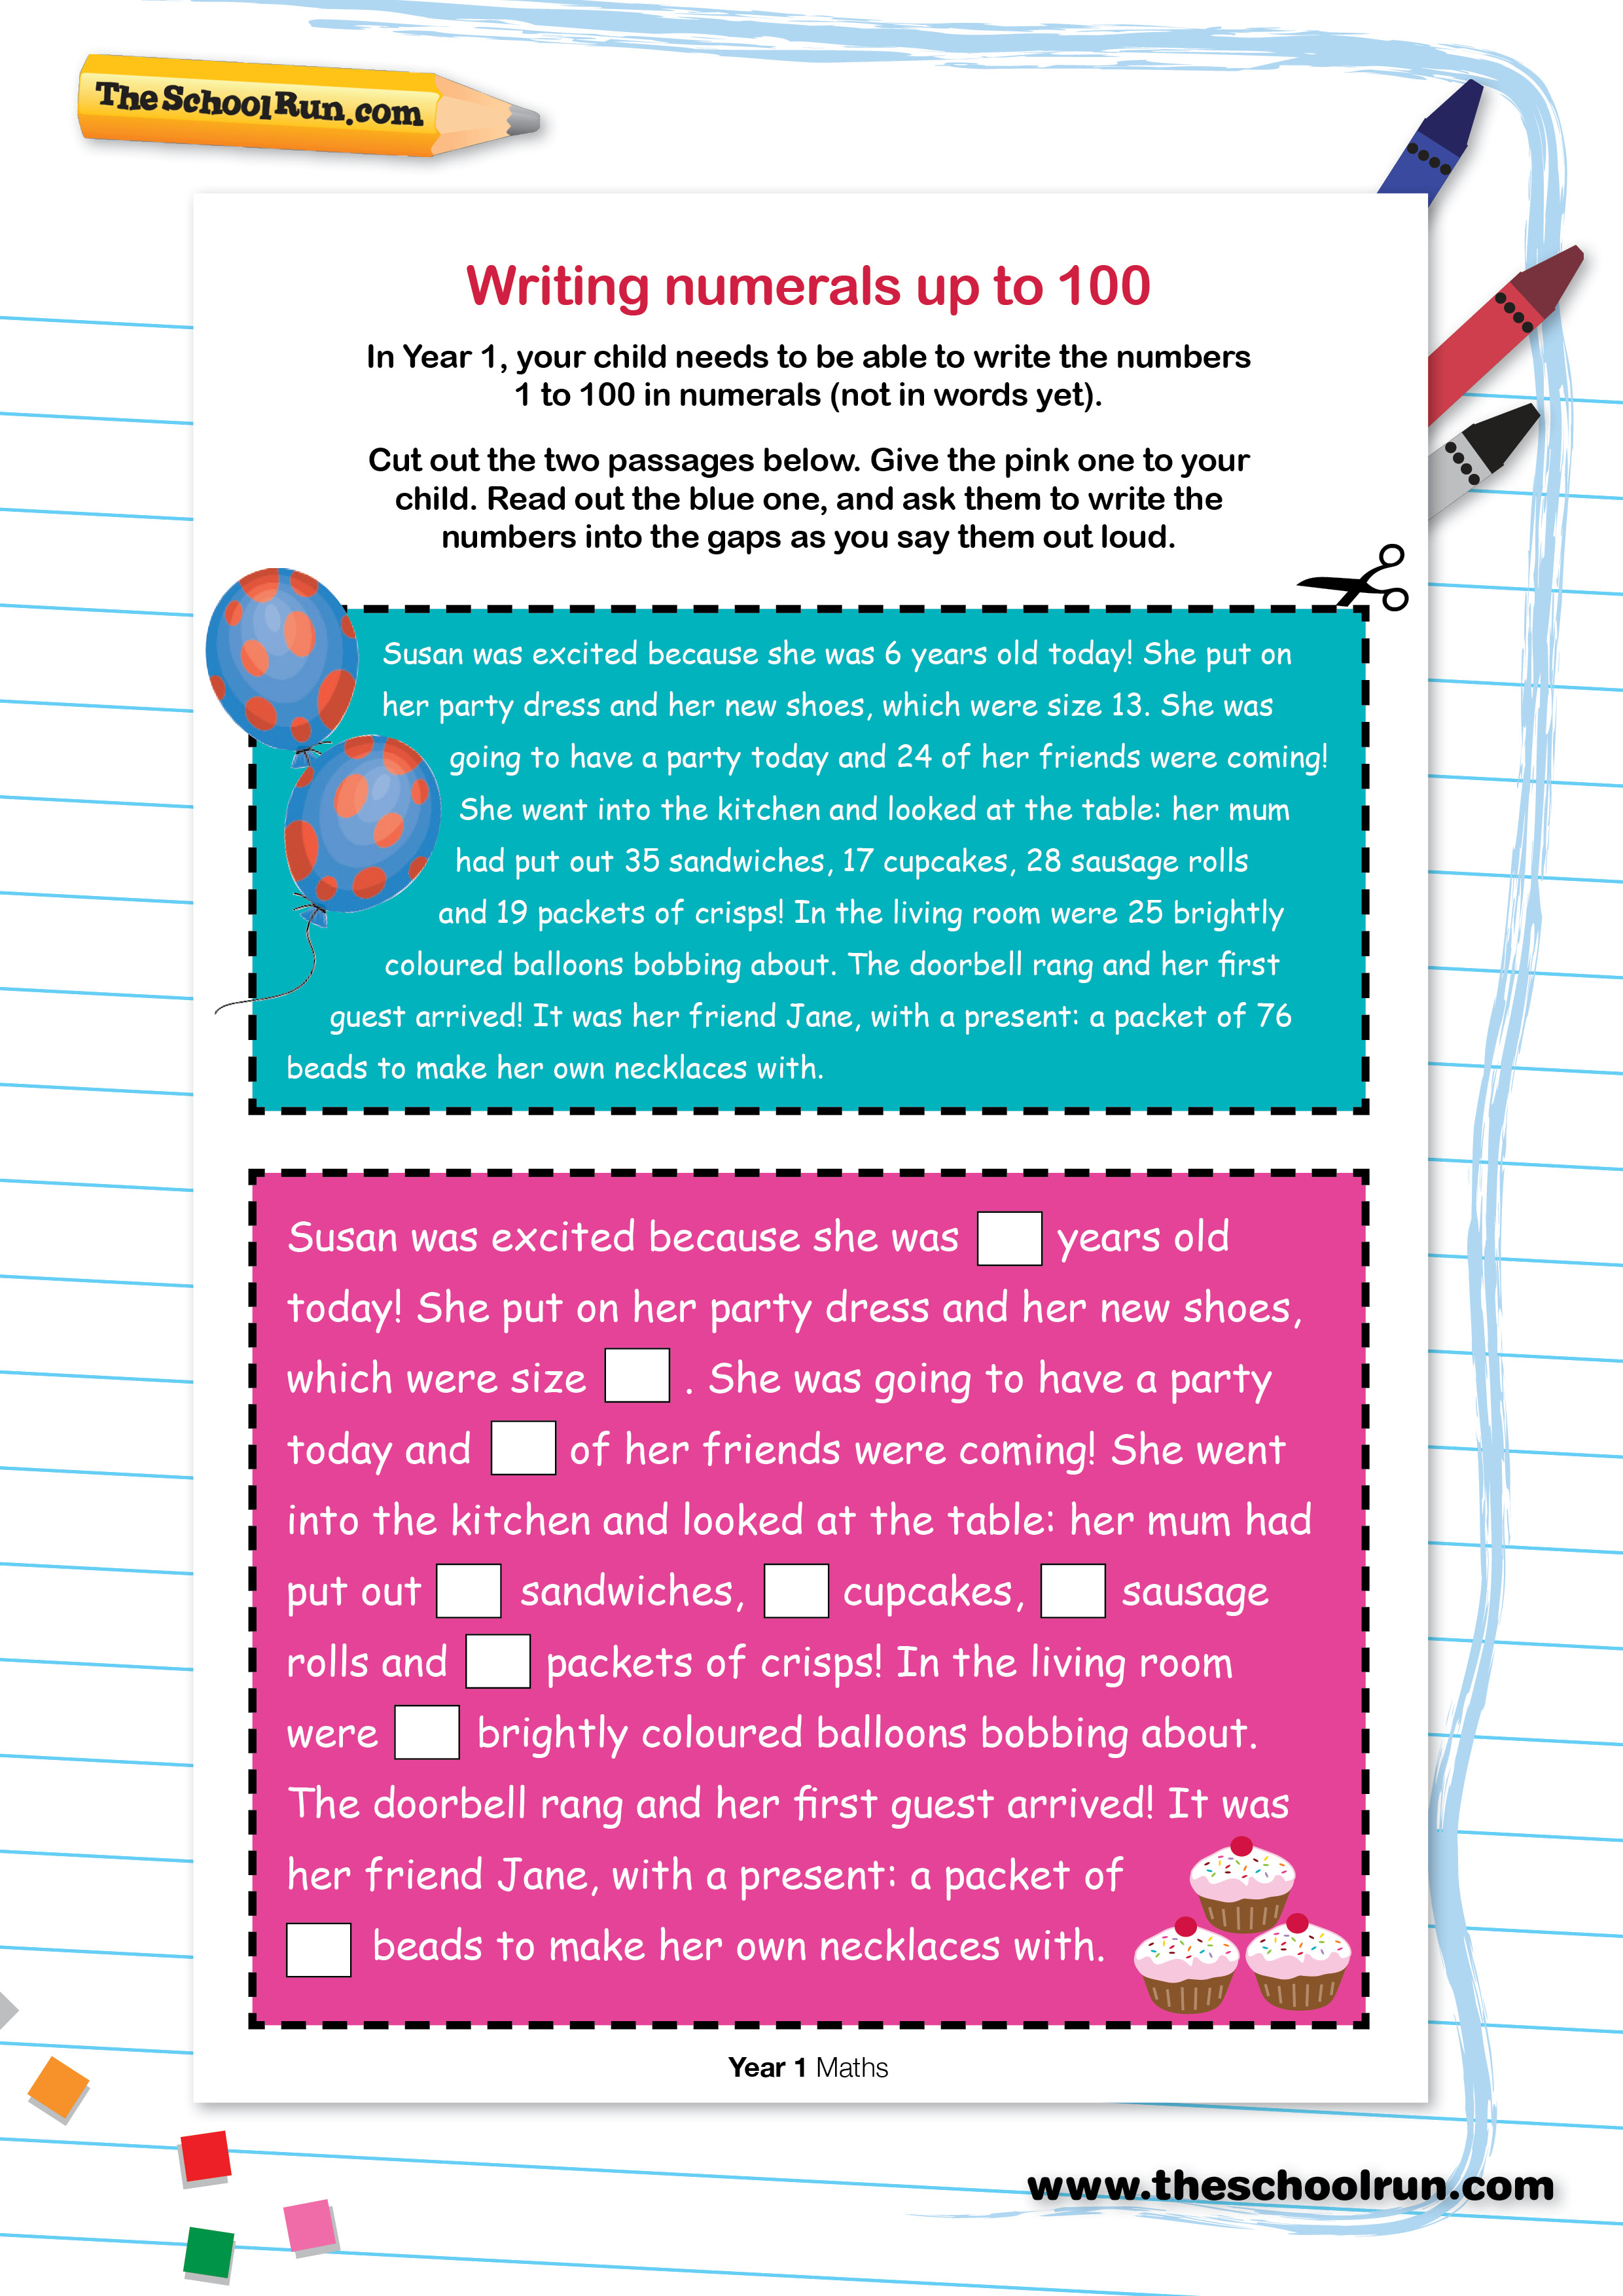 TheSchoolRun.com
Writing numerals up to 100
In Year 1, your child needs to be able to write the numbers
1 to 100 in numerals (not in words yet).
Cut out the two passages below. Give the pink one to your
child. Read out the blue one, and ask them to write the
numbers into the gaps as you say them out loud.
Susan was excited because she was 6 years old today! She put on
her party dress and her new shoes, which were size 13. She was
going to have a party today and 24 of her friends were coming!
She went into the kitchen and looked at the table: her mum
had put out 35 sandwiches, 17 cupcakes, 28 sausage rolls
and 19 packets of crisps! In the living room were 25 brightly
coloured balloons bobbing about. The doorbell rang and her first
guest arrived! It was her friend Jane, with a present: a packet of 76
beads to make her own necklaces with.
Susan was excited because she was years old
today! She put on her party dress and her new shoes,
which were size . She was going to have a party
today and of her friends were coming! She went
into the kitchen and looked at the table: her mum had
put out sandwiches, cupcakes, sausage
rolls and packets of crisps! In the living room
were brightly coloured balloons bobbing about.
The doorbell rang and her first guest arrived! It was
her friend Jane, with a present: a packet of
beads to make her own necklaces with.
Year 1 Maths
www.theschoolrun.com